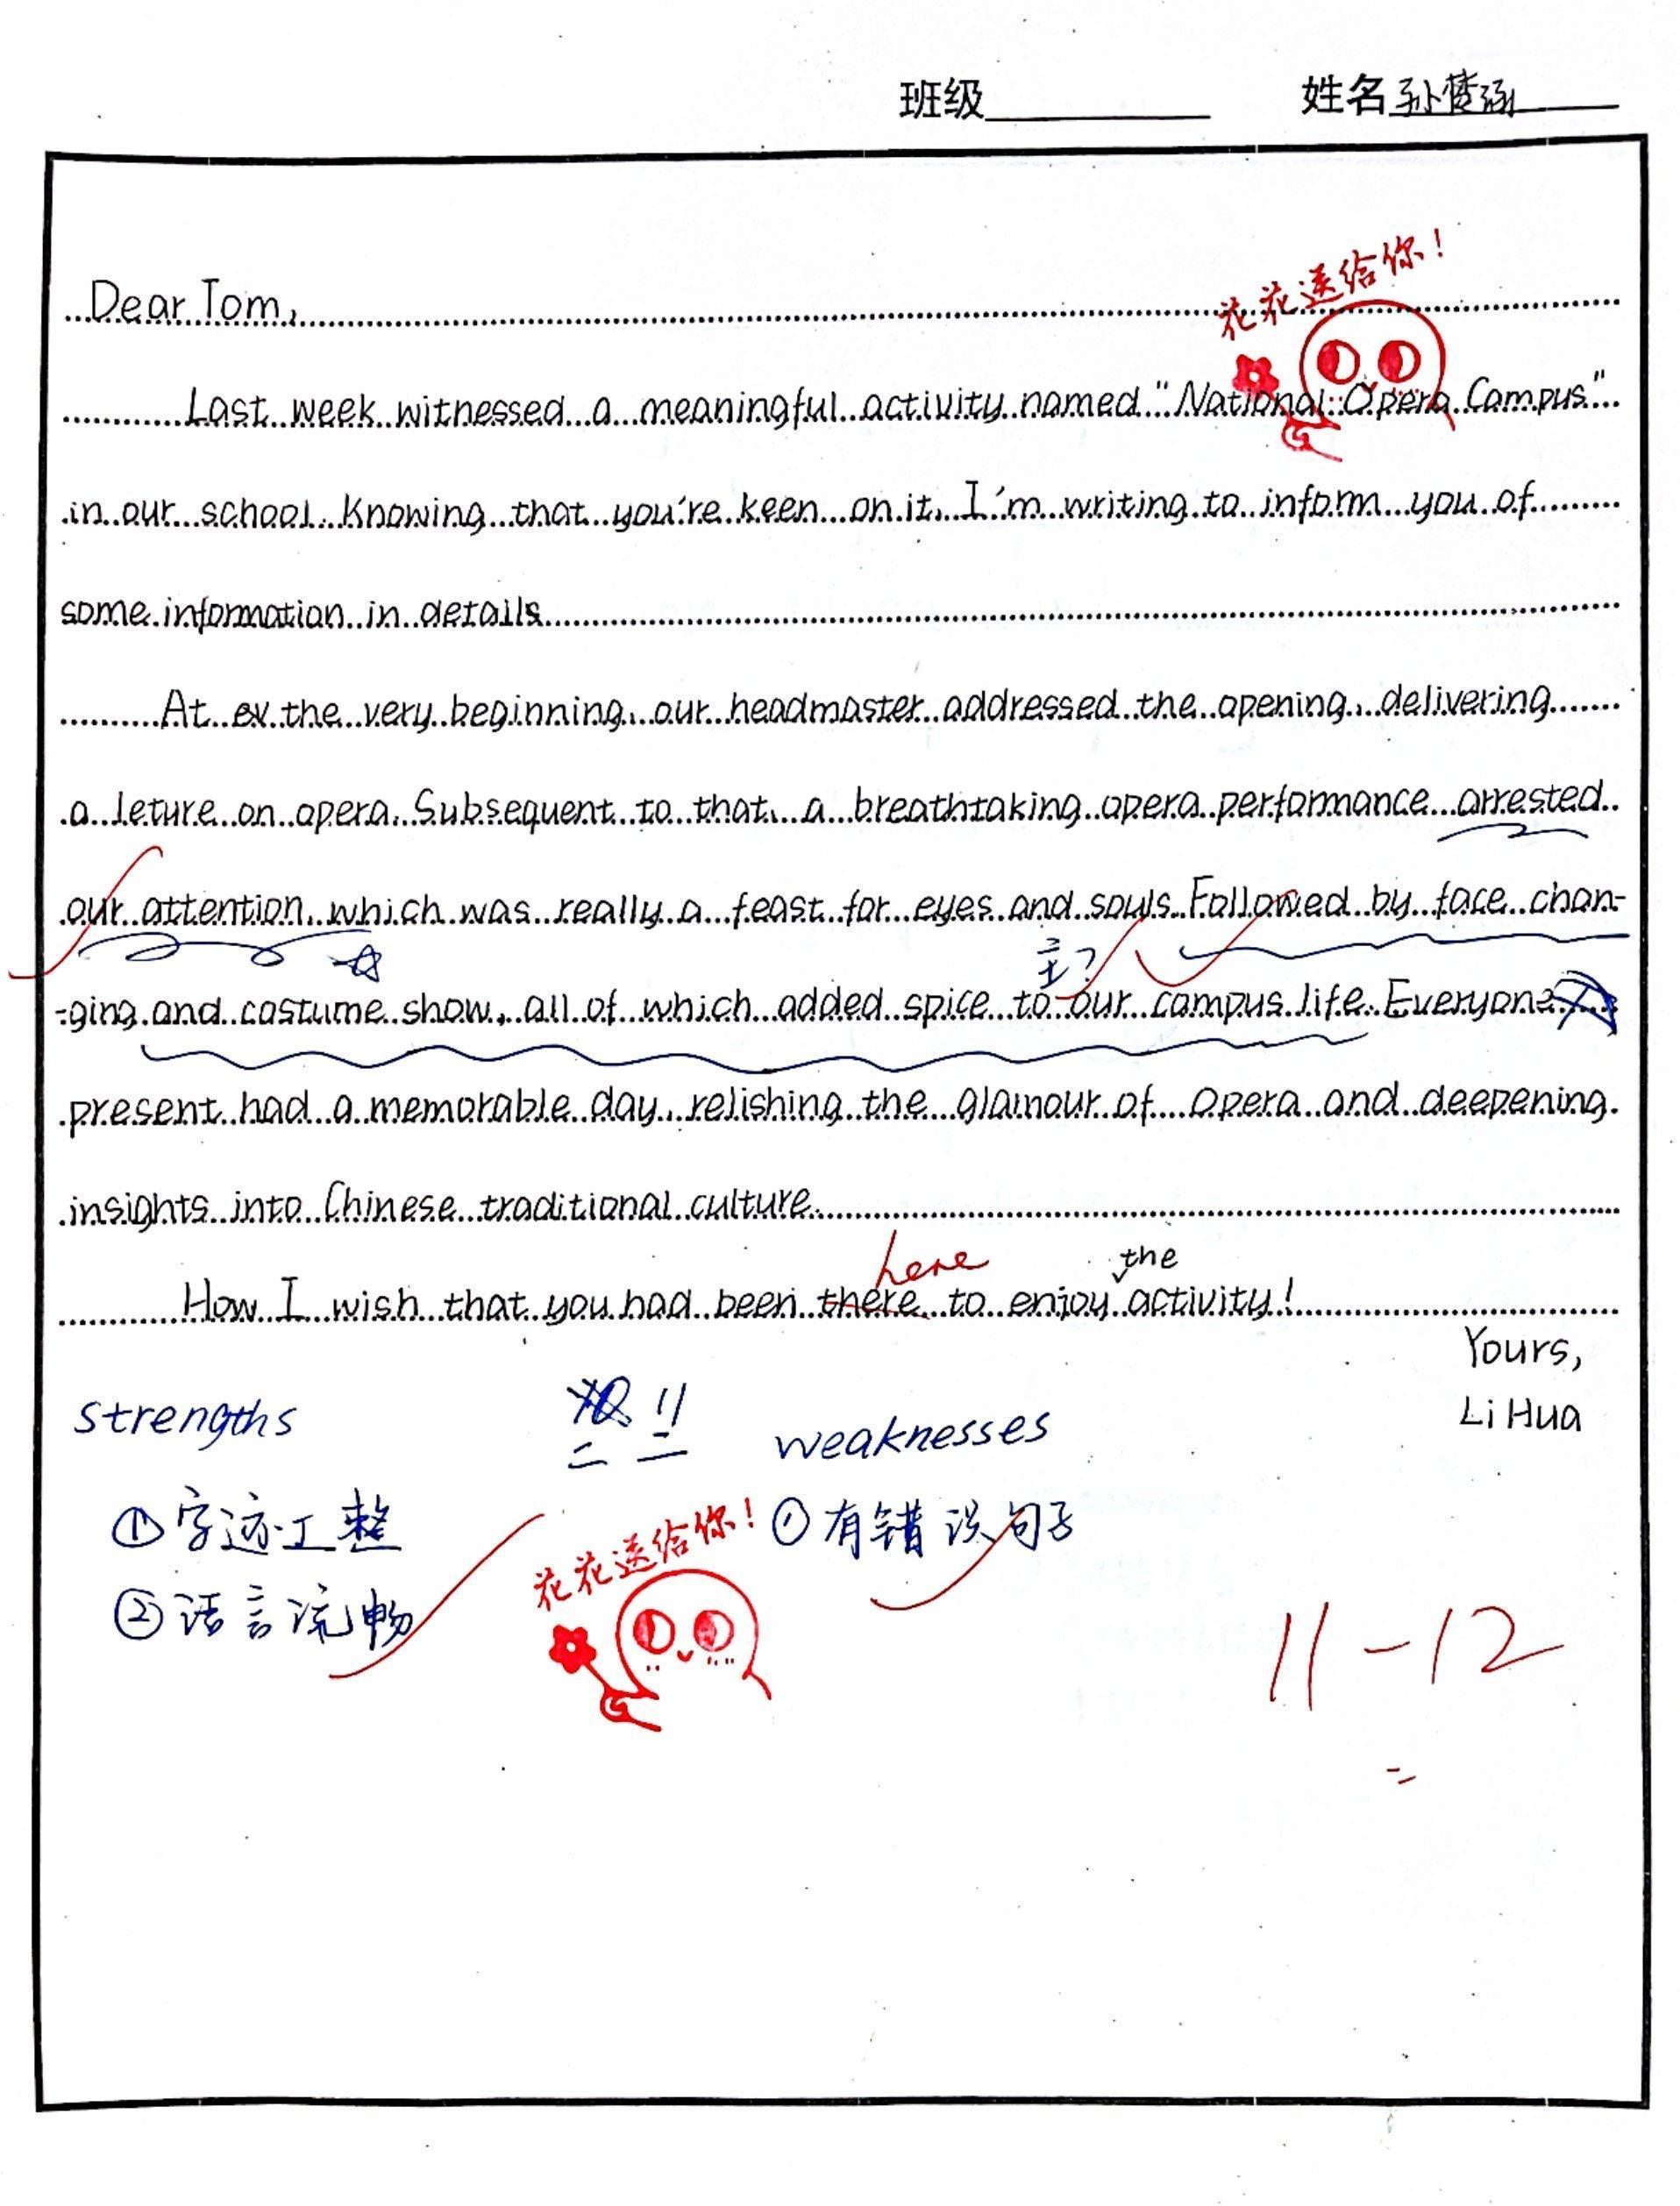 班级 姓名 孙楚涵
花花送给你!
Dear Tom,
Last week witnessed a meaningful activity named "National Opera Campus"
in our school. Knowing that you're keen on it, I'm writing to inform you of
some information in details.
At the very beginning, our headmaster addressed the opening, delivering
a leture on opera. Subsequent to that, a breathtaking opera performance arrested
our attention, which was really a feast for eyes and souls. Followed by face chan-
主?
-ging and costume show, all of which added spice to our campus life. Everyone
present had a memorable day, relishing the glamour of opera and deepening
insights into Chinese traditional culture.
here the
How I wish that you had been there to enjoy activity!
Yours,
Li Hua
strengths
weaknesses
①字迹工整
①有错误句子
②语言流畅
花花送给你!
11-12